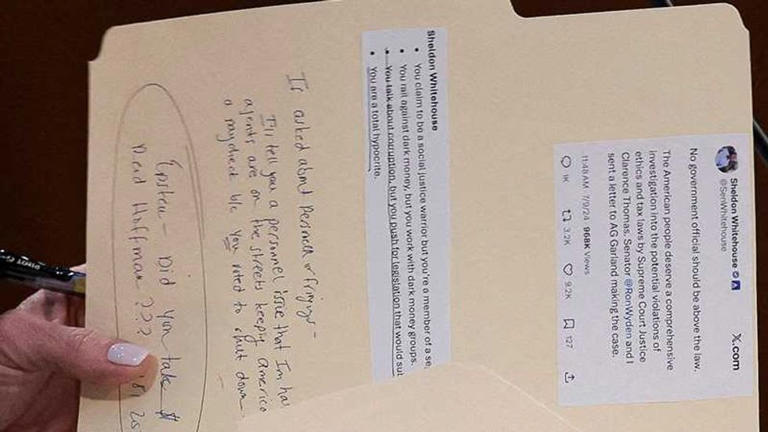 Sheldon Whitehouse
@SenWhitehouse
X.com
No government official should be above the law.
The American people deserve a comprehensive
investigation into the potential violations of
ethics and tax laws by Supreme Court Justice
Clarence Thomas. Senator @RonWyden and I
sent a letter to AG Garland making the case.
11:48 AM 7/9/24 968K Views
1K 3.2K 9.2K 127
Sheldon Whitehouse
• You claim to be a social justice warrior but you're a member of a se
• You rail against dark money, but you work with dark money groups.
• You talk about corruption, but you push for legislation that would sub
• You are a total hypocrite.
If asked about Personnel or Firings -
I'll tell you a personnel issue that Im ha
agents are on the streets keeping America
a paycheck b/c you voted to shut down
Epstein - Did you take $
Reid Hoffman ???